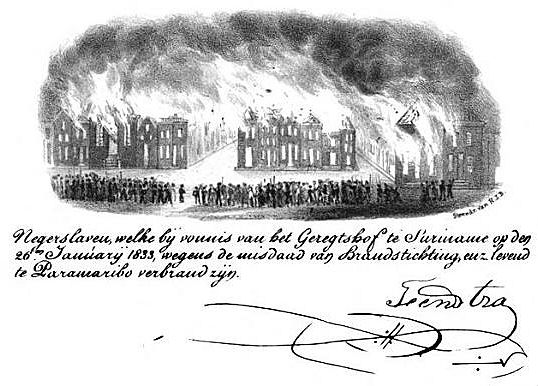 Steendr. van H.J.B.
Negerslaven, welke bij vonnis van het Geregtshof te Suriname op den
26sten January 1833, wegens de misdaad van Brandstichting, enz. levend
te Paramaribo verbrand zijn.
Teenstra